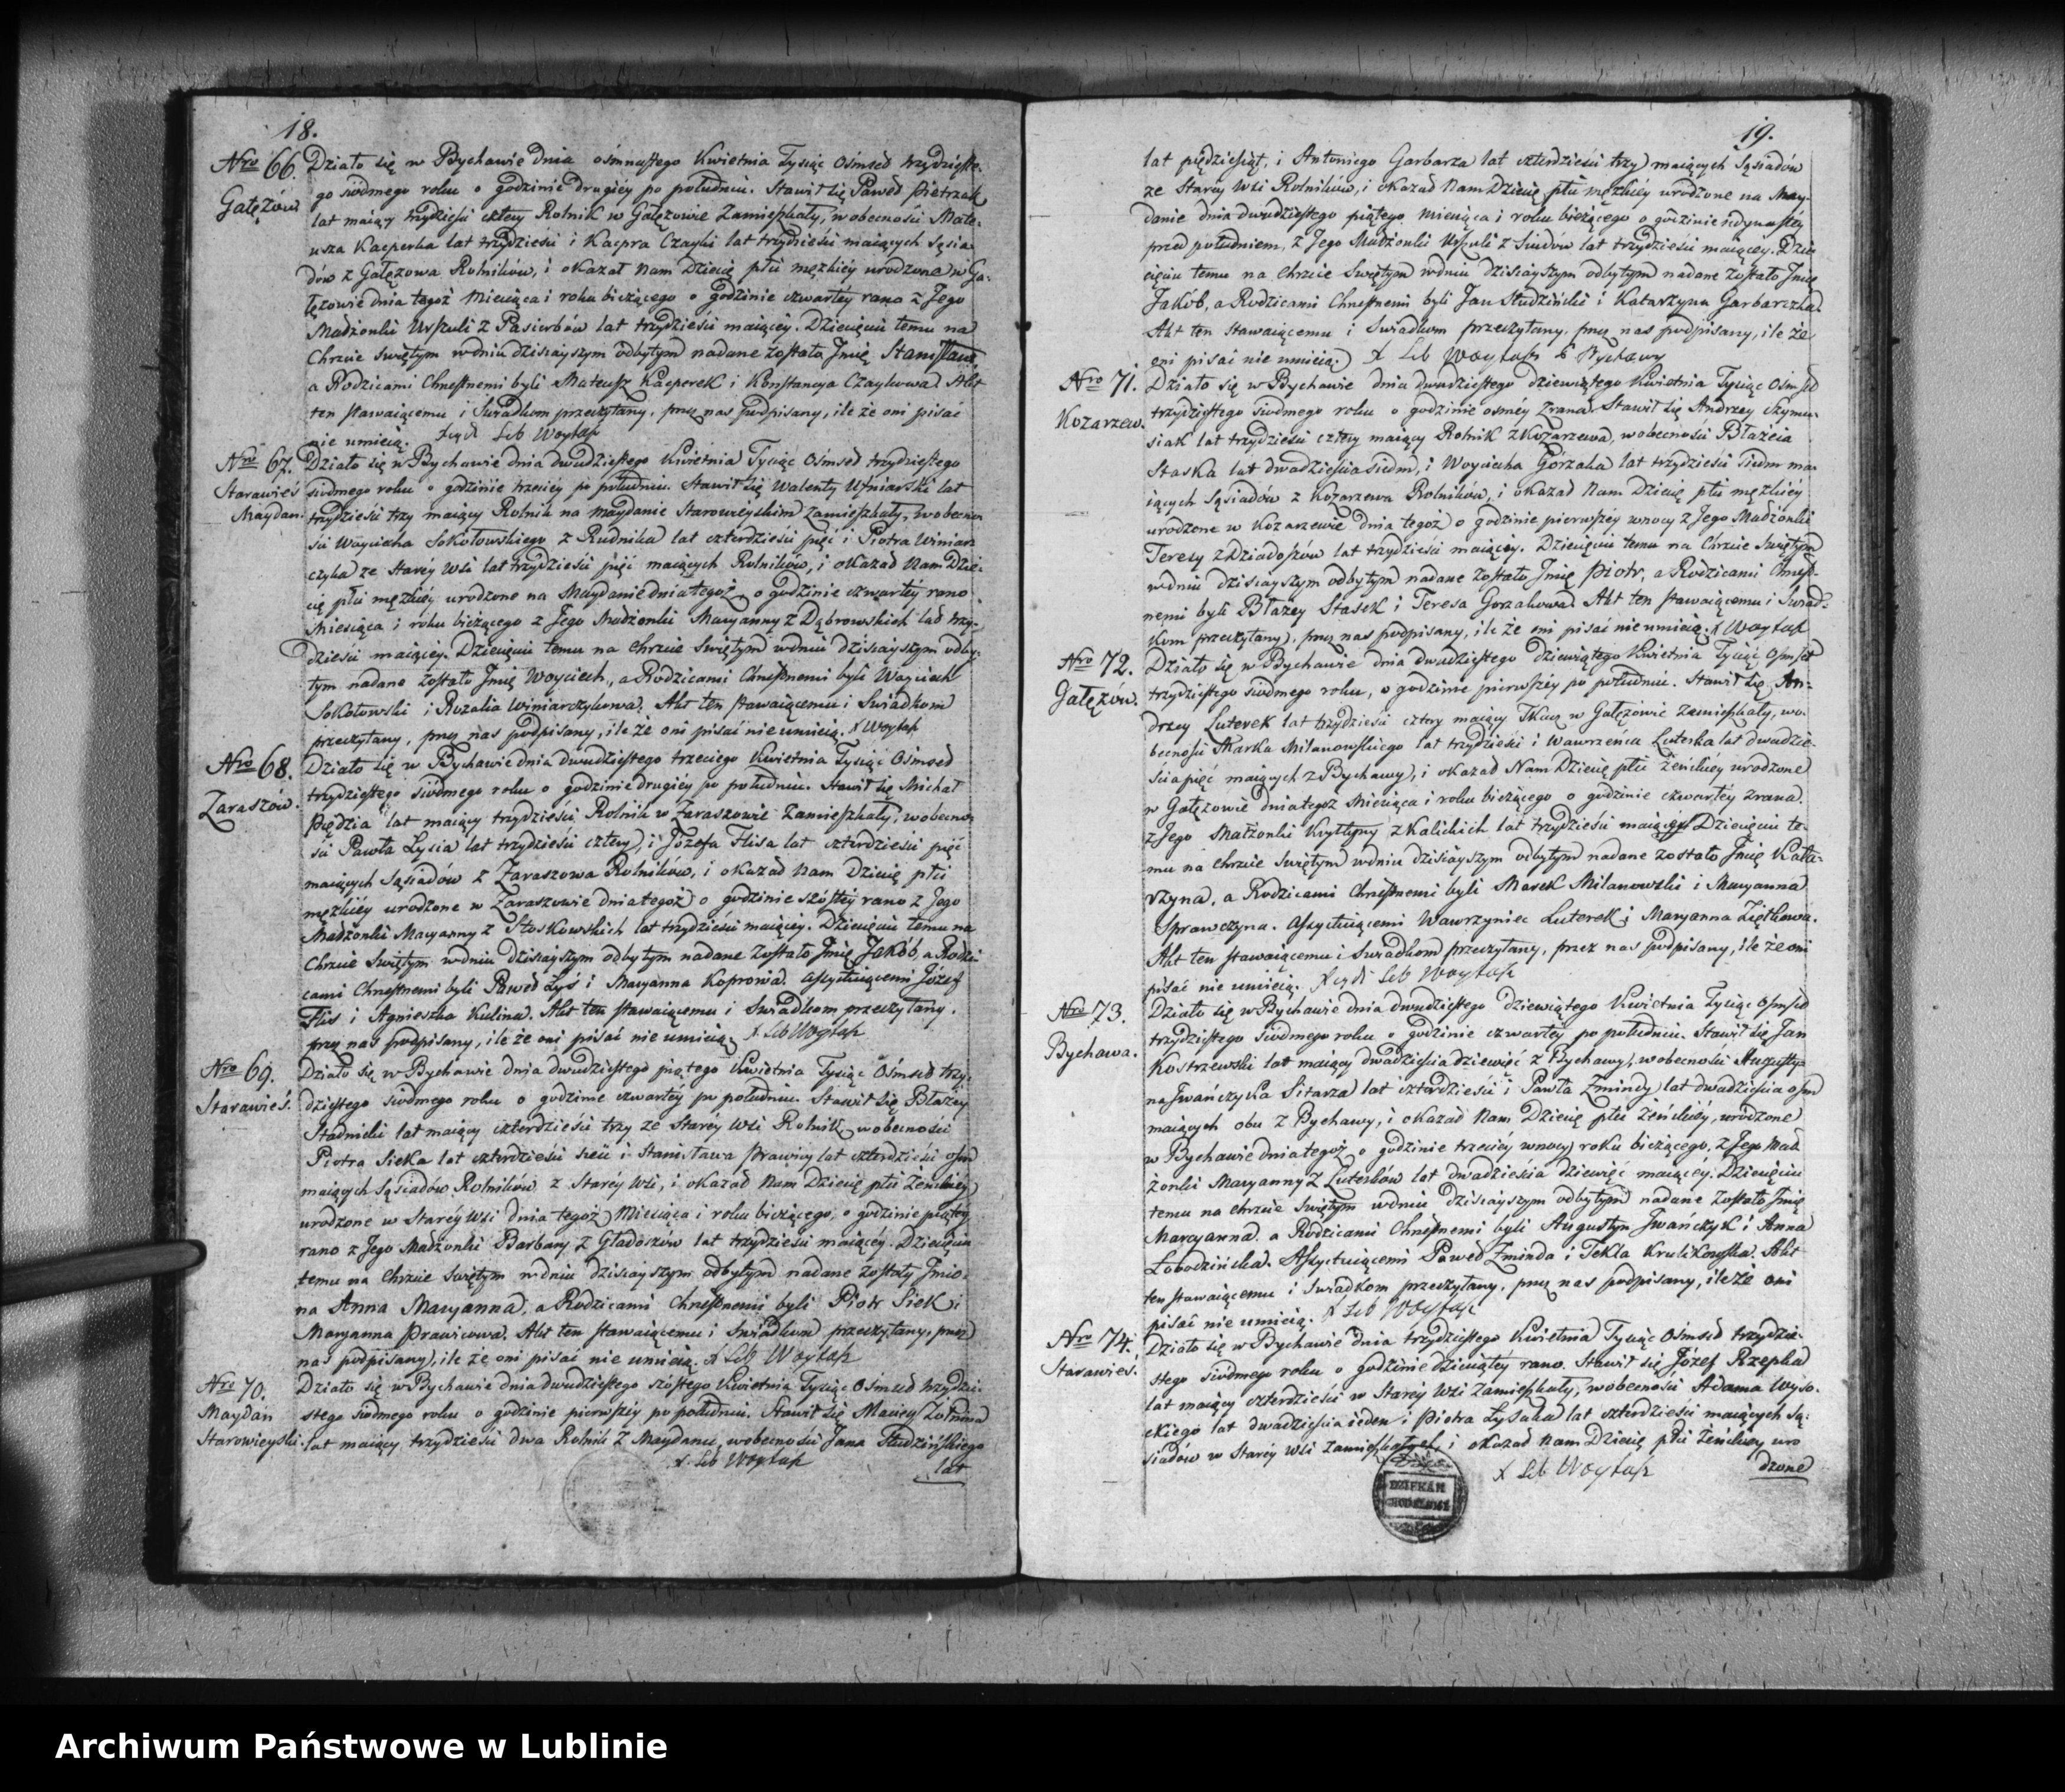 18.
Nro 66.
Gałęzów
Działo się w Bychawie dnia ośmnastego Kwietnia Tysiąc Ośmset trzydzieste-
go siódmego roku o godzinie drugiéy po południu. Stawił się Paweł Pietrzak
lat maiący trzydzieści cztery Rolnik w Gałęzowie Zamieszkały, w obecności Mate-
usza Kacperka lat trzydzieści i Kacpra Czayki lat trzydzieści maiących Sąsia-
dów z Gałęzowa Rolników, i okazał Nam Dziecię płci męzkiéy urodzone w Ga-
łęzowie dnia tegoż Miesiąca i roku bieżącego o godzinie czwartéy rano z Jego
Małżonki Urszuli z Pasierbów lat trzydzieści maiącéy. Dziecięciu temu na
Chrzcie Swiętym w dniu dzisiayszym odbytym nadane zostało Jmię Stanisław,
a Rodzicami Chrzestnemi byli Mateusz Kacperek i Konstancya Czaykowa. Akt
ten stawaiącemu i Swiadkom przeczytany, przez nas podpisany, ile że oni pisać
nie umieią. Woytasz
Nro 67.
Starawieś
Maydan.
Działo się w Bychawie dnia dwudziestego Kwietnia Tysiąc Ośmset trzydziestego
siódmego roku o godzinie trzeciéy po południu. Stawił się Walenty Uśniarski lat
trzydzieści trzy maiący Rolnik na Maydanie Starowieyskim Zamieszkały, w obecno-
ści Woyciecha Sokołowskiego z Rudnika lat czterdzieści pięć i Piotra Winiar-
czyka ze Starey Wsi lat trzydzieści pięć maiących Rolników, i okazał Nam Dzie-
cię płci męzkiéy urodzone na Maydanie dnia tegoż o godzinie czwartéy rano
Miesiąca i roku bieżącego z Jego Małżonki Maryanny z Dąbrowskich lat trzy-
dzieści maiącéy. Dziecięciu temu na Chrzcie Swiętym w dniu dzisiayszym odby-
tym nadane zostało Jmię Woyciech, a Rodzicami Chrzestnemi byli Woyciech
Sokołowski i Rozalia Winiarczykowa. Akt ten stawaiącemu i Swiadkom
przeczytany, przez nas podpisany, ile że oni pisać nie umieią. X Woytasz
Nro 68.
Zaraszów.
Działo się w Bychawie dnia dwudziestego trzeciego Kwietnia Tysiąc Ośmset
trzydziestego siódmego roku o godzinie drugiéy po południu. Stawił się Michał
Piędzia lat maiący trzydzieści Rolnik w Zaraszowie Zamieszkały, w obecno-
ści Pawła Łysia lat trzydzieści cztery, i Józefa Flisa lat czterdzieści pięć
maiących Sąsiadów z Zaraszowa Rolników, i okazał Nam Dziecię płci
męzkiéy urodzone w Zaraszowie dnia tegoż o godzinie szóstéy rano z Jego
Małżonki Maryanny z Stoskowskich lat trzydzieści maiącéy. Dziecięciu temu na
Chrzcie Swiętym w dniu dzisiayszym odbytym nadane zostało Jmię Jakób, a Rodzi-
cami Chrzestnemi byli Paweł Łyś i Maryanna Koprowa. Assystuiącemi Józef
Flis i Agnieszka Kulina. Akt ten stawaiącemu i Swiadkom przeczytany,
przez nas podpisany, ile że oni pisać nie umieią. X Leb Woytasz
Nro 69.
Starawieś.
Działo się w Bychawie dnia dwudziestego piątego Kwietnia Tysiąc Ośmset trzy-
dziestego siódmego roku o godzinie czwartéy po południu. Stawił się Błażey
Stadnicki lat maiący czterdzieści trzy ze Staréy Wsi Rolnik, w obecności
Piotra Sieka lat czterdzieści sześć i Stanisława Prawicy lat czterdzieści ośm
maiących Sąsiadów Rolników z Staréy Wsi, i okazał Nam Dziecię płci żeńskiéy
urodzone w Staréy Wsi dnia tegoż Miesiąca i roku bieżącego, o godzinie piątéy
rano z Jego Małżonki Barbary z Gładoszów lat trzydzieści maiącéy. Dziecięciu
temu na Chrzcie Swiętym w dniu dzisiayszym odbytym nadane zostały Jmio-
na Anna Maryanna, a Rodzicami Chrzestnemi byli Piotr Siek i
Maryanna Prawicowa. Akt ten stawaiącemu i Swiadkom przeczytany, przez
nas podpisany, ile że oni pisać nie umieią. X Leb Woytasz
Nro 70.
Maydan
Starowieyski.
Działo się w Bychawie dnia dwudziestego szóstego Kwietnia Tysiąc Ośmset trzydzie-
stego siódmego roku o godzinie pierwszéy po południu. Stawił się Maciey Żołnina
lat maiący trzydzieści dwa Rolnik z Maydanu, w obecności Jana Studzińskiego
X Leb Woytasz
lat
19.
lat pięćdziesiąt, i Antoniego Garbarza lat czterdzieści trzy maiących Sąsiadów
ze Staréy Wsi Rolników, i okazał Nam Dziecię płci męzkiéy urodzone na May-
danie dnia dwudziestego piątego Miesiąca i roku bieżącego o godzinie iedynastéy
przed południem, z Jego Małżonki Urszuli z Siudów lat trzydzieści maiącéy. Dzie-
cięciu temu na Chrzcie Swiętym w dniu dzisiayszym odbytym nadane zostało Jmię
Jakób, a Rodzicami Chrzestnemi byli Jan Studziński i Katarzyna Garbarczka.
Akt ten stawaiącemu i Swiadkom przeczytany, przez nas podpisany, ile że
oni pisać nie umieią. X Leb Woytasz Bychawy
Nro 71.
Kozarzew.
Działo się w Bychawie dnia dwudziestego dziewiątego Kwietnia Tysiąc Ośmset
trzydziestego siódmego roku o godzinie ósméy z rana. Stawił się Andrzey Szymu-
siak lat trzydzieści cztery maiący Rolnik z Kozarzewa, w obecności Błażeia
Staska lat dwadzieścia siedm, i Woyciecha Górzaka lat trzydzieści siedm ma-
iących Sąsiadów z Kozarzewa Rolników, i okazał Nam Dziecię płci męzkiéy
urodzone w Kozarzewie dnia tegoż o godzinie pierwszéy w nocy z Jego Małżonki
Teresy z Dziadoszów lat trzydzieści maiącéy. Dziecięciu temu na Chrzcie Swiętym
w dniu dzisiayszym odbytym nadane zostało Jmię Piotr, a Rodzicami Chrzest-
nemi byli Błażey Stasek i Teresa Gorzakowa. Akt ten stawaiącemu i Swiad-
kom przeczytany, przez nas podpisany, ile że oni pisać nie umieią. X Woytasz
Nro 72.
Gałęzów.
Działo się w Bychawie dnia dwudziestego dziewiątego Kwietnia Tysiąc Ośmset
trzydziestego siódmego roku, o godzinie pierwszéy po południu. Stawił się An-
drzey Luterek lat trzydzieści cztery maiący Tkacz w Gałęzowie Zamieszkały, w o-
becności Marka Milanowskiego lat trzydzieści i Wawrzeńca Luterka lat dwadzie-
ścia pięć maiących z Bychawy, i okazał Nam Dziecię płci żeńskiéy urodzone
w Gałęzowie dnia tegoż Miesiąca i roku bieżącego o godzinie czwartéy z rana.
z Jego Małżonki Krystyny z Kalickich lat trzydzieści maiącéy. Dziecięciu te-
mu na Chrzcie Swiętym w dniu dzisiayszym odbytym nadane zostało Jmię Kata-
rzyna, a Rodzicami Chrzestnemi byli Marek Milanowski i Maryanna
Sprawczyna. Assystuiącemi Wawrzyniec Luterek i Maryanna Ziętkowa.
Akt ten stawaiącemu i Swiadkom przeczytany, przez nas podpisany, ile że oni
pisać nie umieią. Leb Woytasz
Nro 73.
Bychawa.
Działo się w Bychawie dnia dwudziestego dziewiątego Kwietnia Tysiąc Ośmset
trzydziestego siódmego roku o godzinie czwartéy po południu. Stawił się Jan
Kostrzewski lat maiący dwadzieścia dziewięć z Bychawy, w obecności Augusty-
na Jwańczyka Sitarza lat czterdzieści i Pawła Zmindy lat dwadzieścia ośm
maiących obu z Bychawy, i okazał Nam Dziecię płci żeńskiéy, urodzone
w Bychawie dnia tegoż o godzinie trzeciéy w nocy roku bieżącego, z Jego Mał-
żonki Maryanny z Luterków lat dwadzieścia dziewięć maiącéy. Dziecięciu
temu na chrzcie Swiętym w dniu dzisiayszym odbytym nadane zostało Jmię
Maryanna, a Rodzicami Chrzestnemi byli Augustyn Jwańczyk i Anna
Łobodzińska. Assystuiącemi Paweł Zminda i Tekla Krulikowska. Akt
ten stawaiącemu i Swiadkom przeczytany, przez nas podpisany, ile że oni
pisać nie umieią. X Leb Woytasz
Nro 74.
Starawieś.
Działo się w Bychawie dnia trzydziestego Kwietnia Tysiąc Ośmset trzydzie-
stego siódmego roku o godzinie dziesiątéy rano. Stawił się Józef Rzepka
lat maiący czterdzieści w Staréy Wsi Zamieszkały, w obecności Adama Wyso-
ckiego lat dwadzieścia ieden i Piotra Łysaka lat czterdzieści maiących Są-
siadów w Staréy Wsi zamieszkałych, i okazał Nam Dziecię płci żeńskiéy uro
X Leb Woytasz
dzone
DZIEKAN
CHODELSKI
Archiwum Państwowe w Lublinie